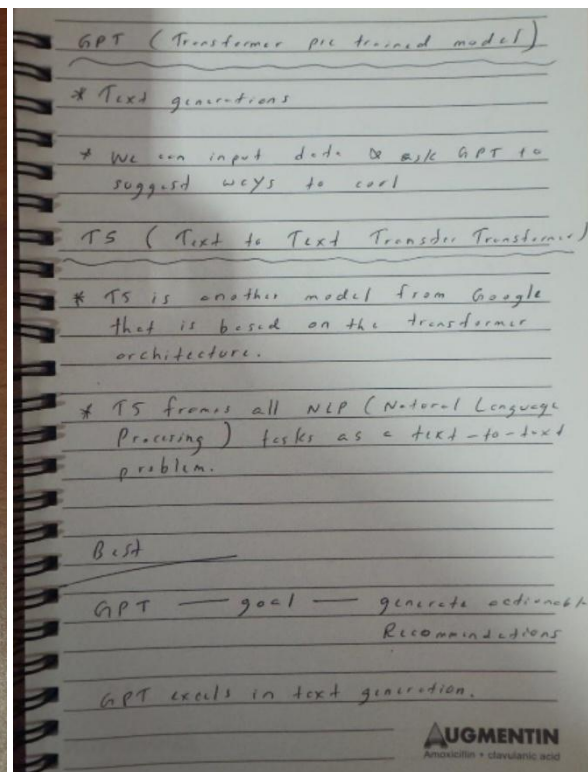 GPT (Transformer pre trained model)
* Text generations
* We can input data & ask GPT to
suggest ways to
T5 (Text to Text Transfer Transformer)
* T5 is another model from Google
that is based on the transformer
architecture.
* T5 frames all NLP (Natural Language
Procesing) tasks as a text-to-text
problem.
Best
GPT — goal — generate actionable
Recommendations
GPT excels in text generation.
AUGMENTIN
Amoxicillin + clavulanic acid